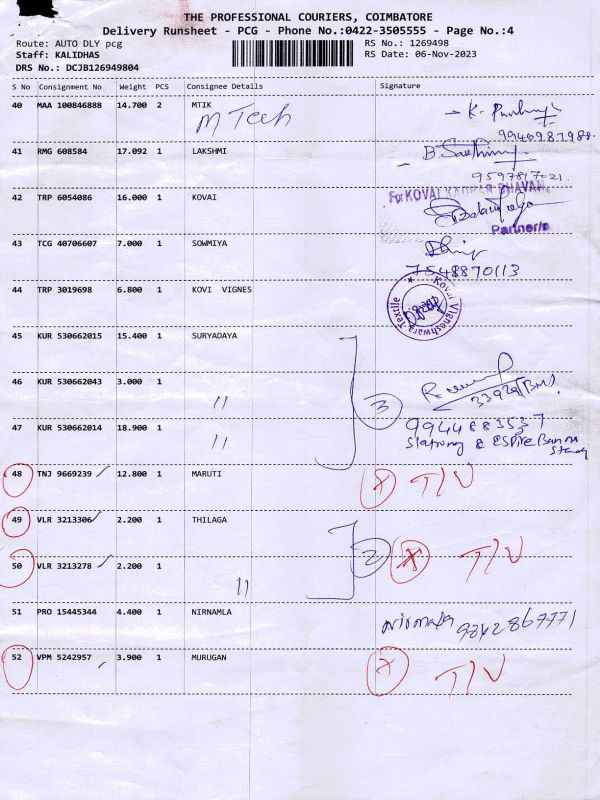 THE PROFESSIONAL COURIERS, COIMBATORE
Delivery Runsheet - PCG - Phone No.:0422-3505555 - Page No.:4
Route: AUTO DLY pcg
RS No.: 1269498
Staff: KALIDHAS
RS Date: 06-Nov-2023
DRS No.: DCJB126949804
S No Consignment No Weight PCS Consignee Details Signature
40 MAA 100846888 14.700 2 MTIK
M Tech
41 RMG 608584 17.092 1 LAKSHMI
9597817021
42 TRP 6054086 16.000 1 KOVAI
For KOVAI KADPAR BHAVAN,
Partner/s
43 TCG 40706607 7.000 1 SOWMIYA
7548870113
44 TRP 3019698 6.800 1 KOVI VIGNES
Kovai Vigneshwara Textile
45 KUR 530662015 15.400 1 SURYADAYA
46 KUR 530662043 3.000 1 "
3
47 KUR 530662014 18.900 1 "
9944883537
48 TNJ 9669239 ✓ 12.800 1 MARUTI
X T/V
49 VLR 3213306 ✓ 2.200 1 THILAGA
2 X T/V
50 VLR 3213278 ✓ 2.200 1 "
51 PRO 15445344 4.400 1 NIRNAMLA
Nirmala 9842867771
52 VPM 5242957 ✓ 3.900 1 MURUGAN
X T/V